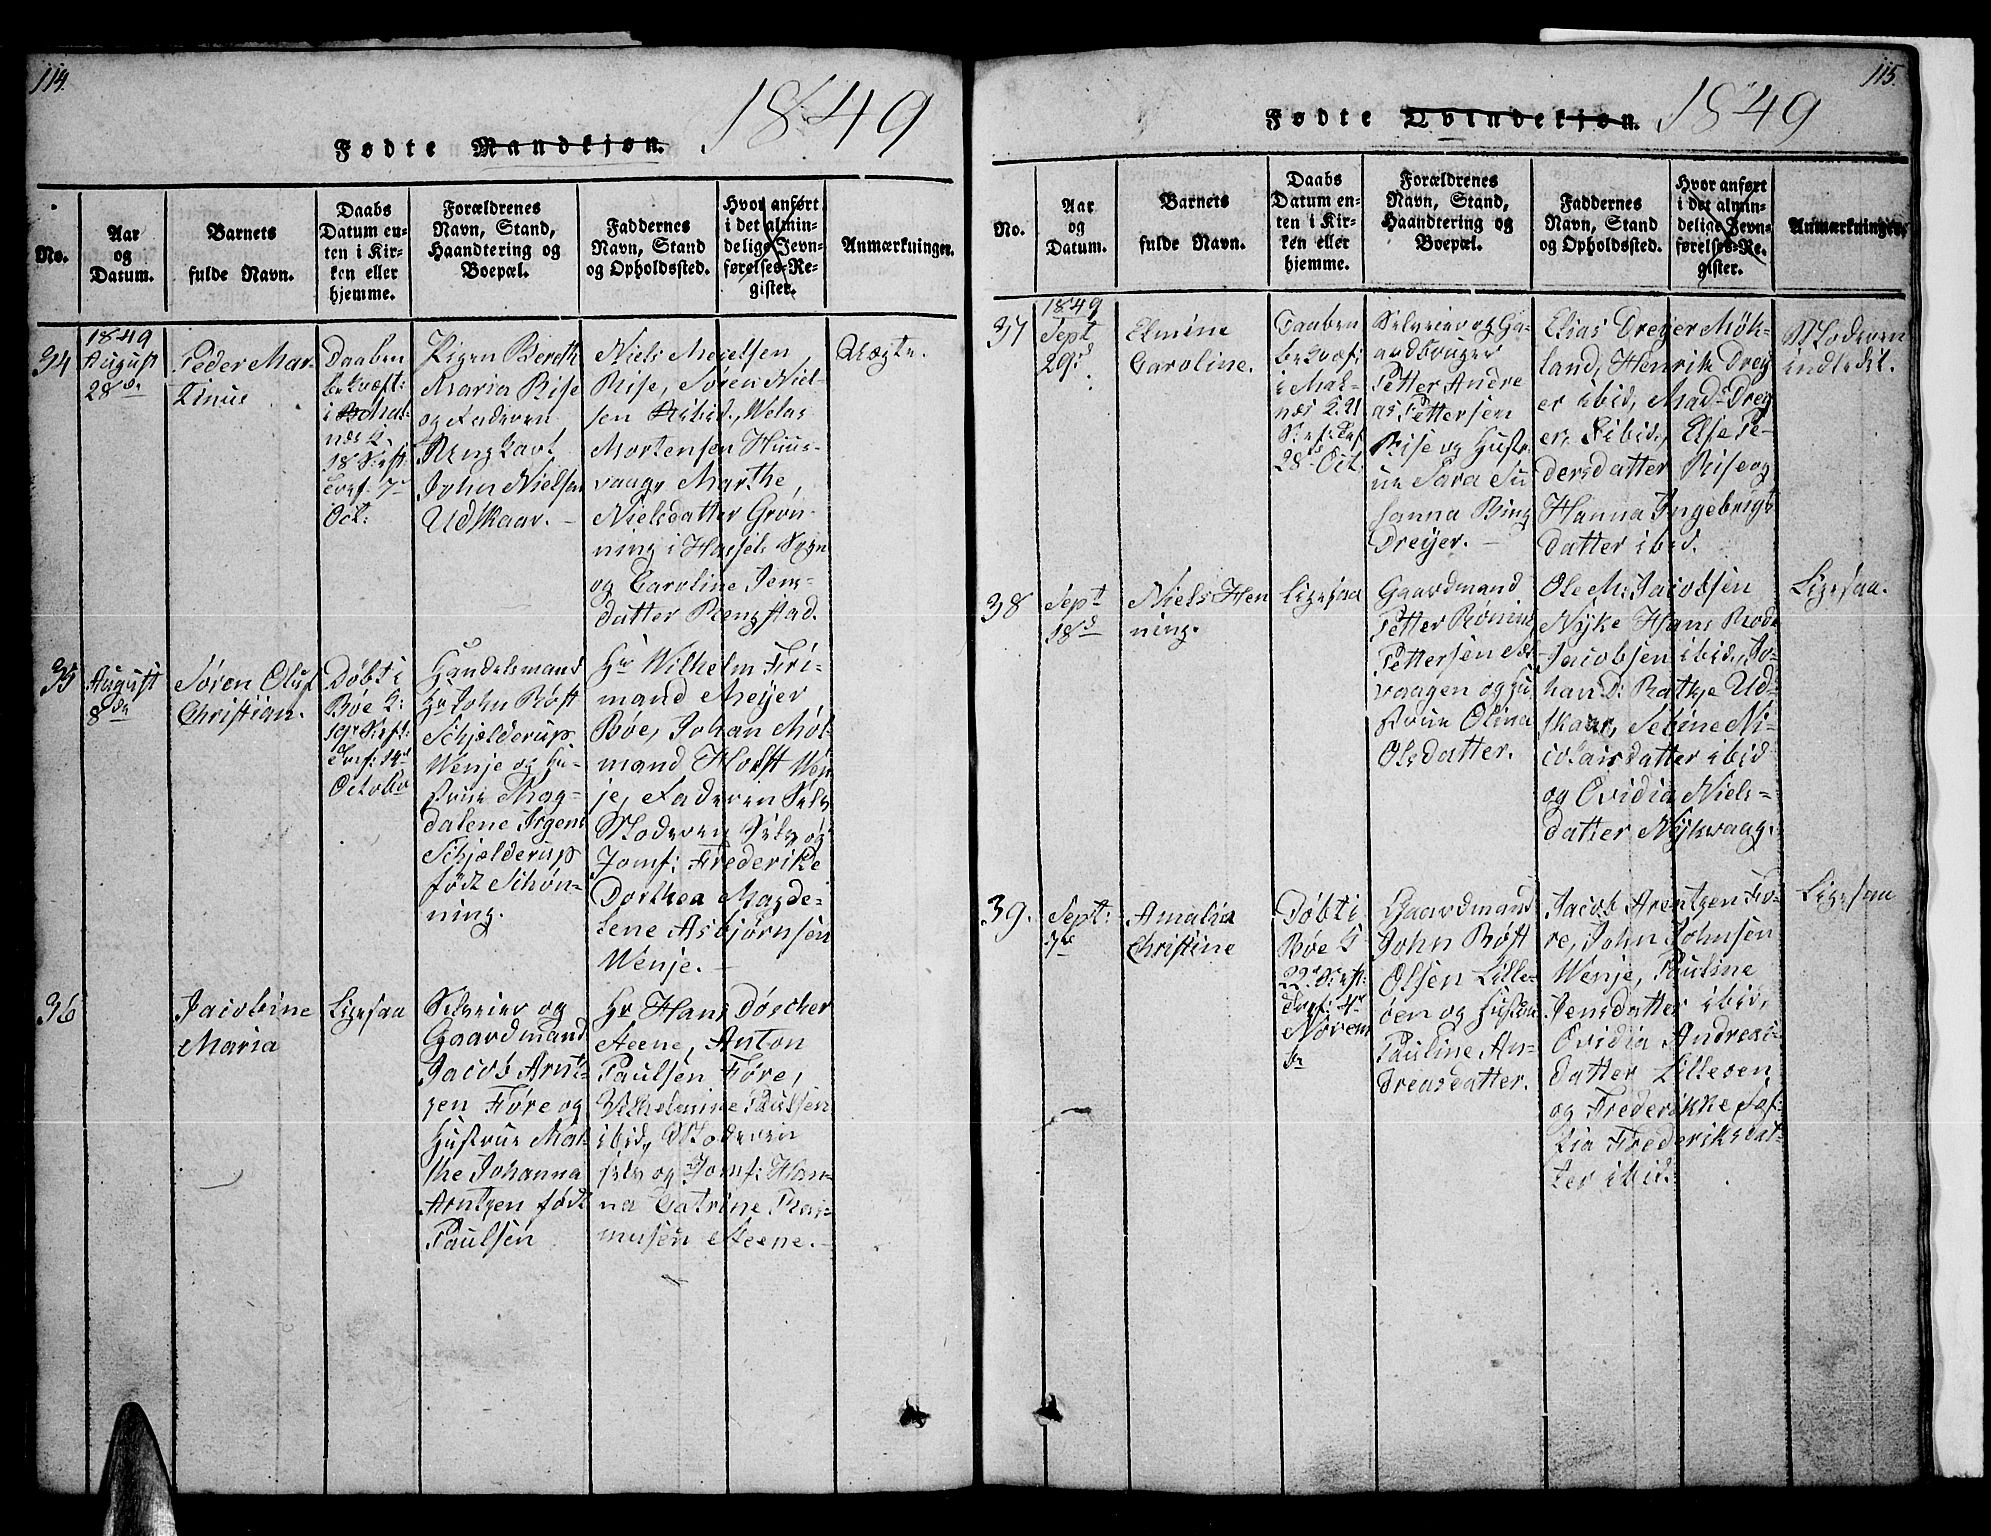 114.
1849
Fødte Mandkjøn.
No.
Aar
og
Datum.
Barnets
fulde Navn.
Daabs
Datum en-
ten i Kir-
ken eller
hjemme.
Forældrenes
Navn, Stand,
Haandtering og
Boepæl.
Faddernes
Navn, Stand
og Opholdssted.
Hvor anført
i det almin-
delige Jevn-
førelses-Re-
gister.
Anmærkninger.
34
1849
August
28de
Peder Mar-
tinus
Daaben
bekræft:
i
næs K.
18 Sept
Oct:
Pigen Bereth
Maria Rise
og Faderen
Ungkarl
John Nielsen
Udskaar. –
Niels Meyelsen
Rise, Søren Niel-
sen ibid., Velas
Mortensen Huus-
vaag, Marthe
Nielsdatter Grøn-
ning i Hassels Sogn
og Caroline Jens-
datter Ringstad.
Uægte.
35
August
8de
Søren Oluf
Christian.
Døbt i
Bøe K:
19de Sept:
Octobr
Handelsmand
Hr John Røst
Schjelderup
Wenje og Hu-
strue Mag-
dalene Irgens
Schjelderup
født Schøn-
ning.
Hr Wilhelm Fri-
mand Meyer
Bøe, Johan Møl-
mand Holst Wen-
je, Faderen Selv
Moderen Selv og
Jomf: Frederikke
Dorthea Magde-
lene Asbjørnsen
Wenje. –
36
Jacobine
Maria
Ligesaa
Selveier og
Gaardmand
Jacob Arnt-
zen Føre og
Hustrue Mar-
the Johanna
Arntzen født
Paulsen
Hr Hans Døscher
Steene, Anton
Paulsen Føre,
Vilhelmine Paulsen
ibid, Moderen
selv og Jomf: Han-
na Catrine Ras-
musen Steene. –
115.
Fødte Qvindekjøn. 1849
No.
Aar
og
Datum.
Barnets
fulde Navn.
Daabs
Datum en-
ten i Kir-
ken eller
hjemme.
Forældrenes
Navn, Stand,
Haandtering og
Boepæl.
Faddernes
Navn, Stand
og Opholdssted.
Hvor anført
i det almin-
delige Jevn-
førelses-Re-
gister.
Anmærkninger.
37
1849
Sept
29de
Elmine
Caroline.
Daaben
bekræf:
i Mal-
næs K. 21
28de Oct.
Selveier og Ga-
ardbruger
Petter Andre
as Pettersen
Rise og Hustr
ue Sara Su
sanna Bing
Dreyer. –
Elias Dreyer Møk-
land, Henrik Drey
er ibid, Mads Drey
er, S ibid, Else Pe-
dersdatter Rise og
Hanna Ingebrigt
datter ibid.
Moderen
indledet.
38
Sept
18de
Niels Hen
ning.
Ligesaa
Gaardmand
Petter Røning
Pettersen
vaagen og Hu
strue Olina
Olsdatter.
Ole M: Jacobsen
Nyke Hans Rode
Jacobsen ibid, Jo-
han D: Ratkje Ud-
skaar, Sebine Ni-
colaisdatter ibid
og Ovidia Niels-
datter Nykvaag.
Ligesaa.
39.
Sept:
7de
Amalia
Christine
Døbt i
Bøe K
22de Sept.
Novem
br
Gaardmand
John Røst
Olsen Lille-
øen og Hustru
Pauline An-
dreasdatter.
Jacob Arentzen Fø-
re, John Johnsen
Wenje, Pauline
Jensdatter ibid,
Ovidia Andreas-
datter Lilleøen
og Frederikke Sof
fia Frederiksdat-
ter ibid.
Ligesaa